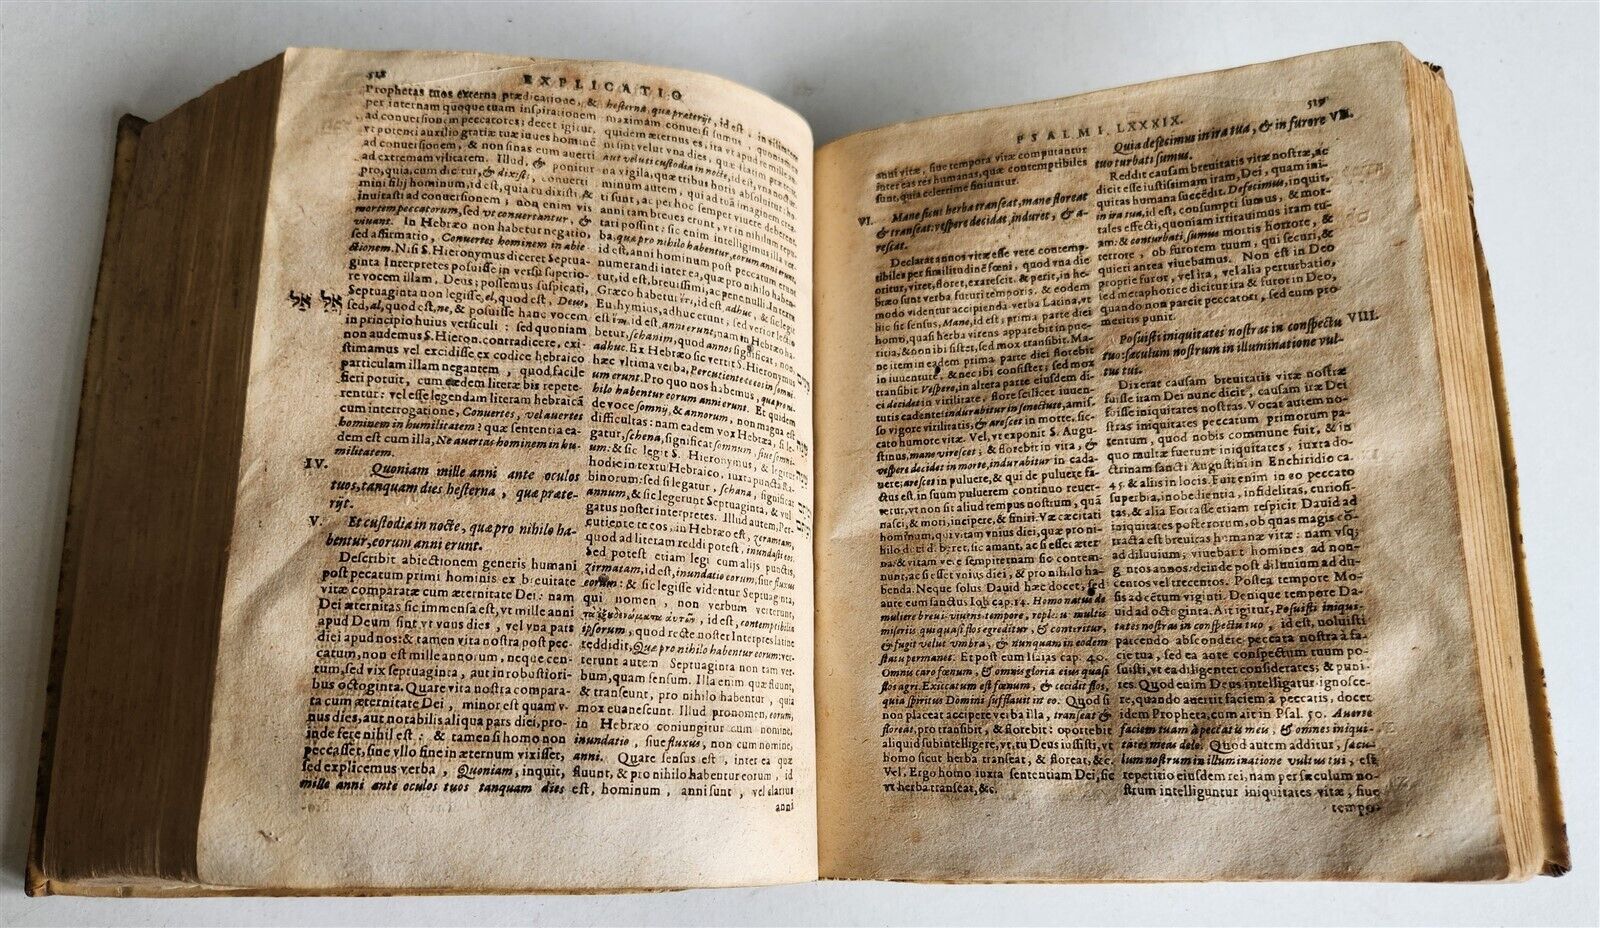 518
EXPLICATIO
Prophetas tuos externa prædicatione, &
per internam quoque tuam inspirationem
ad conuersionem peccatores; decet igitur,
vt potenti auxilio gratiæ tuæ iuues homines
ad conuersionem, & non sinas eum auerti
ad extremam vilitatem. Illud, & ponitur
pro, quia, cum dicitur, & dixisti, conuerti
mini filij hominum, id est, quia tu dixisti, &
inuitasti ad conuersionem; non enim vis
mortem peccatorum, sed vt conuertantur, &
viuant. In Hebræo non habetur negatio,
sed affirmatio, Conuertes hominem in abie-
ctionem. Nisi S. Hieronymus diceret Septua-
ginta Interpretes posuisse in versu superio-
re vocem illam, Deus; possemus suspicati,
Septuaginta non legisse, el, quod est, Deus,
sed, al, quod est, ne, & posuisse hanc vocem
in principio huius versiculi: sed quoniam
non audemus S. Hieron. contradicere, exi-
stimamus vel excidisse ex codice hebraico
particulam illam negantem, quod facile
fieri potuit, cum eædem literæ bis repete-
rentur: vel esse legendam literam hebraicā
cum interrogatione, Conuertes, vel auertes
hominem in humilitatem? quæ sententia ea-
dem est cum illa, Ne auertas hominem in hu-
militatem.
IV. Quoniam mille anni ante oculos
tuos, tanquam dies hesterna, quæ præte-
rijt.
V. Et custodia in nocte, quæ pro nihilo ha-
bentur, eorum anni erunt.
Describit abiectionem generis humani
post peccatum primi hominis ex breuitate
vitæ comparatæ cum æternitate Dei: nam
Dei æternitas sic immensa est, vt mille anni
apud Deum sint vt vnus dies, vel vna pars
diei apud nos: & tamen vita nostra post pec-
catum, non est mille annorum, neque cen-
tum, sed vix septuaginta, aut in robustiori-
bus octoginta. Quare vita nostra compara-
ta cum æternitate Dei, minor est quam v-
nus dies, aut notabilis aliqua pars diei, pro-
inde fere nihil est: & tamen si homo non
peccasset, sine vllo fine in æternum vixisset,
sed explicemus verba, Quoniam, inquit,
mille anni ante oculos tuos tanquam dies
hesterna, quæ præterijt, id est,
maximam conuersi sumus
quidem æternus es, ita vt apud te mille an-
ni sint velut vna dies, quæ
aut veluti custodia in nocte, id est, vna noctur-
na vigila, quæ tribus horis absoluitur: ho-
minum autem, qui ad tuā imaginem
ti sunt, ac per hoc semper viuere deberent,
anni tam breues erunt, vt in nihilum
tari possint: sic enim intelligimus illa ver-
ba, quæ pro nihilo habentur, eorum anni erunt,
id est, anni hominum post peccatum erunt
numerandi inter ea, quæ pro nihilo haben-
tur, id est, breuissimi, ac pene nulli. In textu
Græco habetur ἔτι, id est, adhuc, & sic legit
Euthymius, adhuc erunt, sed verior lectio
est ἔτη, id est, anni erunt, nam in Hebræo ha-
betur, schanim, quod annos significat, non,
adhuc. Ex Hebræo sic vertit S. Hieronymus
hæc vltima verba, Percutiente te eos in somni-
um erunt. Pro quo nos habemus, quæ pro ni-
hilo habentur eorum anni erunt. Et quidem
de voce somnij, & annorum, non magna est
difficultas: nam eadem vox Hebræa, si le-
gatur, schena, significat somnum, siue somni-
um: & sic legit S. Hieronymus, & legitur
hodie in textu Hebraico, iuxta puncta Ra-
binorum: sed si legatur, schana, significat
annum, & sic legerunt Septuaginta, & vul-
gatus noster interpretes. Illud autem, Per-
cutiente te eos, in Hebræo est, zeramtam,
quod ad literam reddi potest, inundasti eos.
Sed potest etiam legi cum alijs punctis,
zirmatam, id est, inundatio eorum, siue fluxus
eorum: & sic legisse videntur Septuaginta,
qui nomen, non verbum verterunt,
τὰ ἐξουδενώματα αὐτῶν, id est, contemptibilia
ipsorum, quod recte noster Interpres latine
reddidit, Quæ pro nihilo habentur eorum: ver-
terunt autem Septuaginta non tam ver-
bum, quam sensum. Illa enim quæ fluunt,
& transeunt, pro nihilo habentur, quia
mox euanescunt. Illud pronomen, eorum,
in Hebræo coniungitur cum nomine,
inundatio, siue fluxus, non cum nomine,
anni. Quare sensus est, inter ea quæ
fluunt, & pro nihilo habentur eorum, id
est, hominum, anni sunt, vel clarius
anni
519
PSALMI. LXXXIX.
anni vitæ, siue tempora vitæ computantur
inter eas res humanas, quæ contemptibiles
sunt, quia celerrime finiuntur.
VI. Mane sicut herba transeat, mane floreat
& transeat: vespere decidat, induret, & a-
rescat.
Declarat annos vitæ esse vere contemp-
tibiles per similitudinē fœni, quod vna die
oritur, viret, floret, exarescit, & perit, in he-
bræo sunt verba futuri temporis, & eodem
modo videntur accipienda verba Latina, vt
hic sit sensus, Mane, id est, prima parte diei
homo, quasi herba virens apparebit in pue-
ritia, & non ibi sistet, sed mox transibit. Ma-
ne item in eadem prima parte diei florebit
in iuuentute, & nec ibi consistet; sed mox
transibit Vespere, in altera parte eiusdem di-
ei decidet in virilitate, flore scilicet iuuen-
tutis cadente: indurabitur in senectute, amis-
so vigore virilitatis, & arescet in morte, sic-
cato humore vitæ. Vel, vt exponit S. Augu-
stinus, mane virescet; & florebit in vita, &
vespere decidet in morte, indurabitur in cada-
uere; arescet in puluere, & qui de puluere fa-
ctus est, in suum puluerem continuo reuer-
tetur, vt non sit aliud tempus nostrum, quā
nasci, & mori, incipere, & finiri. Væ cæcitati
hominum, qui vitam vnius diei, quæ pro ni-
hilo duci deberet, sic amant, ac si esset æter-
na: & vitam vere sempiternam sic contem-
nunt, ac si esset vnius diei, & pro nihilo ha-
benda. Neque solus Dauid hæc docet; sed
ante eum sanctus Iob cap. 14. Homo natus de
muliere breui viuens tempore, repletur multis
miserijs qui quasi flos egreditur, & conteritur,
& fugit velut vmbra, & nunquam in eodem
statu permanet. Et post eum Isaias cap. 40.
Omnis caro fœnum, & omnis gloria eius quasi
flos agri. Exiccatum est fœnum, & cecidit flos,
quia spiritus Domini sufflauit in eo. Quod si
non placeat accipere verba illa, transeat &
floreat, pro transibit, & florebit: oportebit
aliquid subintelligere, vt, tu Deus iussisti, vt
homo sicut herba transeat, & floreat, &c.
Vel, Ergo homo iuxta sententiam Dei, sic
vt herba transeat, &c.
Quia defecimus in ira tua, & in furore VII.
tuo turbati sumus.
Reddit causam breuitatis vitæ nostræ, ac
dicit esse iustissimam iram, Dei, quam ini-
quitas humana succēdit. Defecimus, inquit,
in ira tua, id est, consumpti sumus, & mor-
tales effecti, quoniam irritauimus iram tu-
am: & conturbati sumus mortis horrore, &
terrore, ob furorem tuum, qui securi, &
quieti antea viuebamus. Non est in Deo
proprie furor, vel ira, vel alia perturbatio,
sed metaphorice dicitur ira & furor in Deo,
quando non parcit peccatori, sed eum pro
meritis punit.
Posuisti iniquitates nostras in conspectu VIII.
tuo: sæculum nostrum in illuminatione vul-
tus tui.
Dixerat causam breuitatis vitæ nostræ
fuisse iram Dei nunc dicit, causam iræ Dei
fuisse iniquitates nostras. Vocat autem no-
stras iniquitates peccatum primorum pa-
rentum, quod nobis commune fuit, & in
quo multæ fuerunt iniquitates, iuxta do-
ctrinam sancti Augustini in Enchiridio ca.
45. & aliis in locis. Fuit enim in eo peccato
superbia, inobedientia, infidelitas, curiosi-
tas, & alia Fortasse etiam respicit Dauid ad
iniquitates posterorum, ob quas magis cō-
tracta est breuitas humanæ vitæ: nam vsq;
ad diluuium, viuebant homines ad non-
gentos annos: deinde post diluuium ad du-
centos vel trecentos. Postea tempore Mo-
sis ad centum viginti. Denique tempore Da-
uid ad octoginta. Ait igitur, Posuisti iniqui-
tates nostras in conspectu tuo, id est, noluisti
parcendo abscondere peccata nostra à fa-
cie tua, sed ea ante conspectum tuum po-
suisti, vt ea diligenter considerares; & puni-
res. Quod enim Deus intelligatur ignosce-
re, quando auertit faciem à peccatis, docet
idem Propheta, cum ait in Psal. 50. Auerte
faciem tuam à peccatis meis, & omnes iniqui-
tates meas dele. Quod autem additur, sæcu-
lum nostrum in illuminatione vultus tui, est
repetitio eiusdem rei, nam per sæculum no-
strum intelliguntur iniquitates vitæ, siue
tempo-